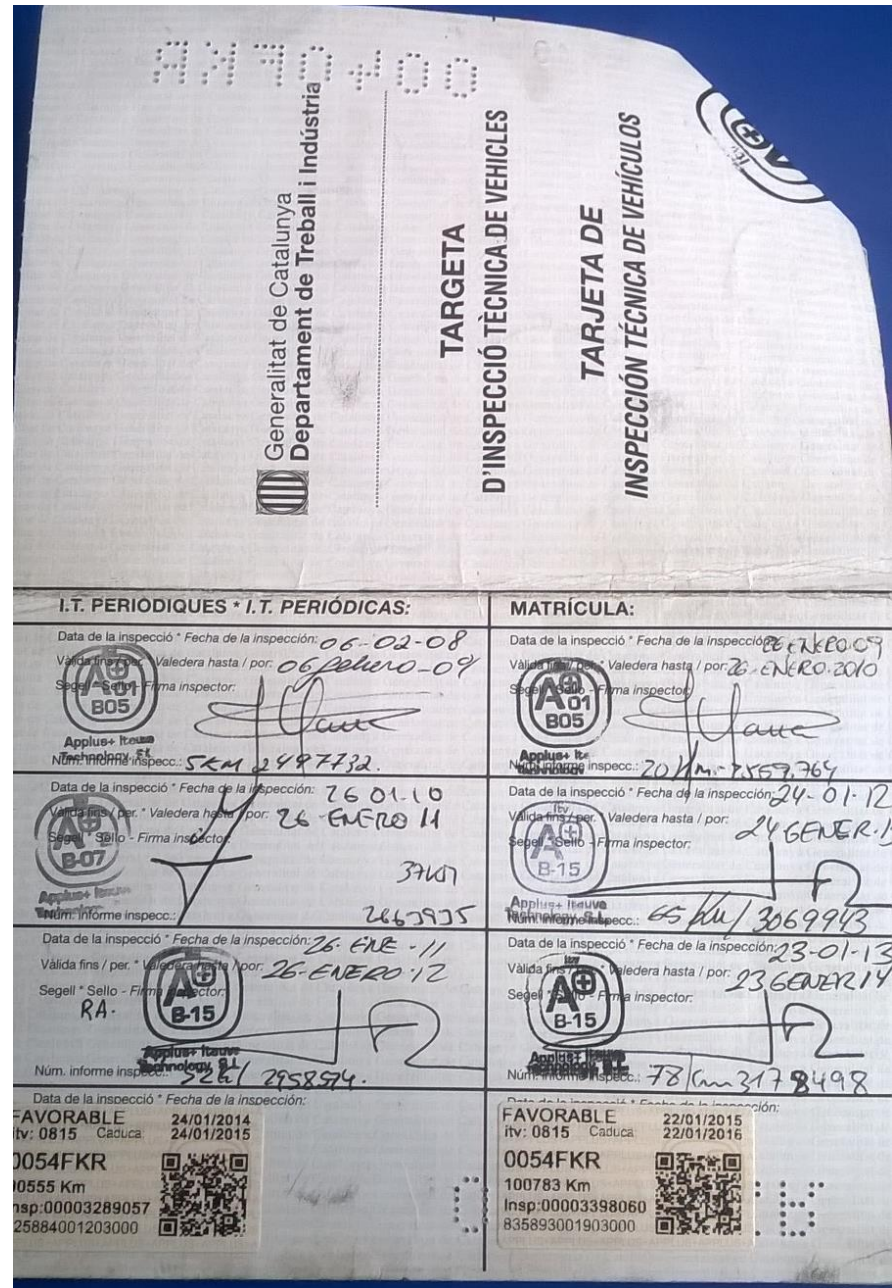 0054FKR
Generalitat de Catalunya
Departament de Treball i Indústria
TARGETA
D'INSPECCIÓ TÈCNICA DE VEHICLES
TARJETA DE
INSPECCIÓN TÉCNICA DE VEHÍCULOS
itv
A+
I.T. PERIODIQUES * I.T. PERIÓDICAS:
Data de la inspecció * Fecha de la inspección: 06-02-08
Vàlida fins / per. * Valedera hasta / por: 06 febrero-09
Segell * Sello - Firma inspector:
A+
01
B05
Applus+ Iteuve
Technology
Núm. informe inspecc.: 5KM 2497732.
Data de la inspecció * Fecha de la inspección: 26 01-10
Vàlida fins / per. * Valedera hasta / por: 26 ENERO 11
Segell * Sello - Firma inspector:
A+
B-07
Applus+ Iteuve
37KM
Núm. informe inspecc.: 2863935
Data de la inspecció * Fecha de la inspección: 26-ENE-11
Vàlida fins / per. * Valedera hasta / por: 26-ENERO-12
Segell * Sello - Firma inspector:
RA.
A+
B-15
Applus+ Iteuve
Technology, S.L.
Núm. informe inspecc.: 2958574.
Data de la inspecció * Fecha de la inspección:
FAVORABLE 24/01/2014
itv: 0815 Caduca 24/01/2015
0054FKR
0555 Km
nsp:00003289057
25884001203000
MATRÍCULA:
Data de la inspecció * Fecha de la inspección: 26 ENERO 09
Vàlida fins / per. * Valedera hasta / por: 26-ENERO-2010
Segell * Sello - Firma inspector:
A+
01
B05
Applus+
Technology
Núm. informe inspecc.: 20 Km - 2.559.764
Data de la inspecció * Fecha de la inspección: 24-01-12
Vàlida fins / per. * Valedera hasta / por: 24 GENER-1
Segell * Sello - Firma inspector:
itv
A+
B-15
Applus+ Iteuve
Technology, S.L.
Núm. informe inspecc.: 65 Km / 3069943
Data de la inspecció * Fecha de la inspección: 23-01-13
Vàlida fins / per. * Valedera hasta / por: 23 GENER 14
Segell * Sello - Firma inspector:
itv
A+
B-15
Applus+ Iteuve
Technology, S.L.
Núm. informe inspecc.: 78 Km 3178498
FAVORABLE 22/01/2015
itv: 0815 Caduca 22/01/2016
0054FKR
100783 Km
Insp:00003398060
835893001903000